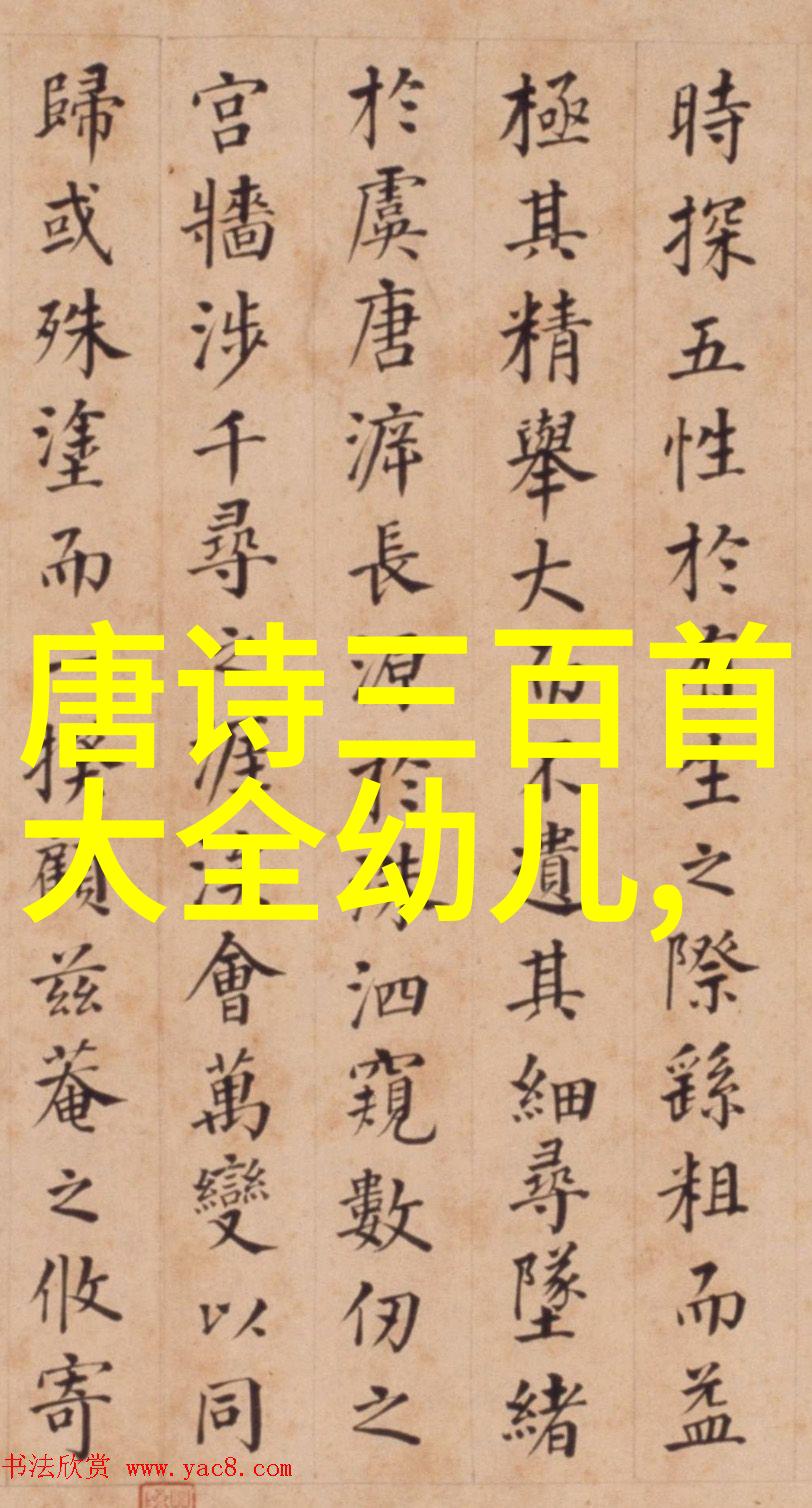 時探五性於有生之際繇粗而益
極其精舉大而不遺其細尋墜緒
於虞唐泝長源於洙泗窺數仞之
宮牆涉千尋之涯涘會萬變以同
歸或殊塗而一揆顧茲菴之攸寄
唐诗三百首
大全幼儿,
书法欣赏 www.yac8.com